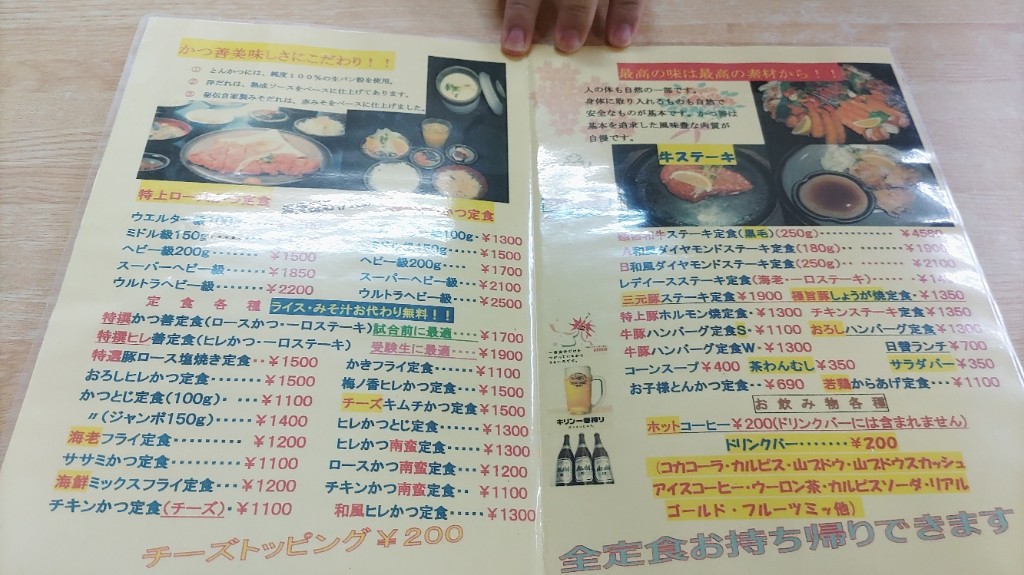 かつ善美味しさにこだわり！！
① とんかつには、純度１００％の生パン粉を使用。
② 洋だれは、熟成ソースをベースに仕上げてあります。
③ 秘伝自家製みそだれは、赤みそをベースに仕上げました。
特上ロースかつ定食
ウエルター級100g
ミドル級150g
ヘビー級200g ¥1500
スーパーヘビー級 ¥1850
ウルトラヘビー級 ¥2200
かつ定食
100g ¥1300
ミドル級150g ¥1500
ヘビー級200g ¥1700
スーパーヘビー級 ¥2100
ウルトラヘビー級 ¥2500
定食各種 ライス・みそ汁お代わり無料！！
特撰かつ善定食(ロースかつ・一口ステーキ)試合前に最適 ¥1700
特撰ヒレ善定食(ヒレかつ・一口ステーキ) 受験生に最適 ¥1900
特選豚ロース塩焼き定食 ¥1500
おろしヒレかつ定食 ¥1500
かつとじ定食(100g) ¥1100
〃(ジャンボ150g) ¥1400
海老フライ定食 ¥1200
ササミかつ定食 ¥1100
海鮮ミックスフライ定食 ¥1200
チキンかつ定食(チーズ) ¥1100
かきフライ定食 ¥1100
梅ノ香ヒレかつ定食 ¥1500
チーズキムチかつ定食 ¥1500
ヒレかつとじ定食 ¥1300
ヒレかつ南蛮定食 ¥1300
ロースかつ南蛮定食 ¥1200
チキンかつ南蛮定食 ¥1100
和風ヒレかつ定食 ¥1300
チーズトッピング¥200
最高の味は最高の素材から！！
人の体も自然の一部です。
身体に取り入れるものも自然で
安全なものが基本です。かつ善は
基本を追求した風味豊な肉質が
自慢です。
牛ステーキ
和牛ステーキ定食(黒毛)(250g) ¥4580
和風ダイヤモンドステーキ定食(180g) ¥1900
日和風ダイヤモンドステーキ定食(250g) ¥2100
レディースステーキ定食(海老・一口ステーキ)
三元豚ステーキ定食 ¥1900 極旨豚しょうが焼定食 ¥1350
特上豚ホルモン焼定食 ¥1300 チキンステーキ定食 ¥1350
牛豚ハンバーグ定食S ¥1100 おろしハンバーグ定食 ¥1300
牛豚ハンバーグ定食W ¥1300 日替ランチ ¥700
コーンスープ ¥400 茶わんむし ¥350 サラダバー ¥350
お子様とんかつ定食 ¥690 若鶏からあげ定食 ¥1100
お飲み物各種
ホットコーヒー ¥200(ドリンクバーには含まれません)
ドリンクバー ¥200
(コカコーラ・カルピス・山ブドウ・山ブドウスカッシュ
アイスコーヒー・ウーロン茶・カルピスソーダ・リアル
ゴールド・フルーツミッ他)
キリン一番搾り
全定食お持ち帰りできます